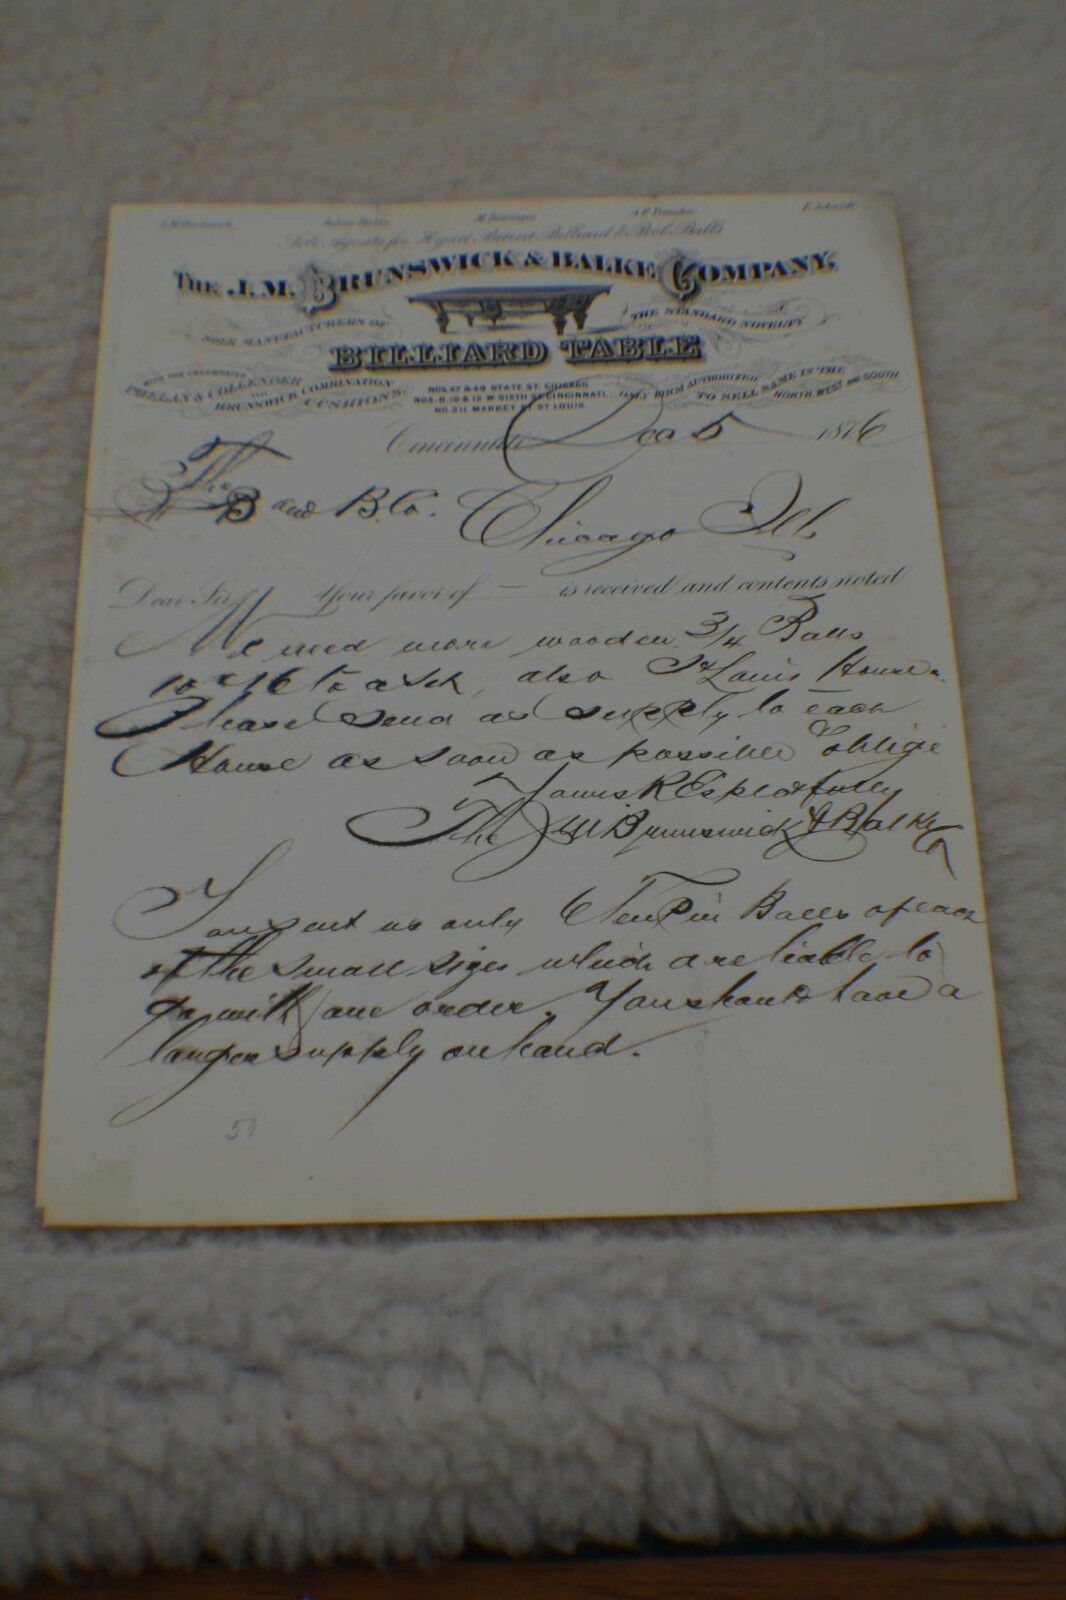 J.M. Brunswick Julius Balke M. Bensinger A.F. Troescher E. Schmidt
Sole Agents for Hyatt Patent Billiard & Pool Balls
THE J.M. BRUNSWICK & BALKE COMPANY,
SOLE MANUFACTURERS OF THE STANDARD NOVELTY
BILLIARD TABLE
WITH THE CELEBRATED
PHELAN & COLLENDER AND BRUNSWICK COMBINATION CUSHIONS.
NOS. 47 & 49 STATE ST. CHICAGO.
NOS. 8, 10 & 12 W. SIXTH ST. CINCINNATI.
NO. 211 MARKET ST. ST LOUIS.
ONLY FIRM AUTHORIZED TO SELL SAME IN THE NORTH, WEST AND SOUTH
Cincinnati Dec 5 1876
The B and B. Co. Chicago Ills
Dear Sir, Your favor of — is received and contents noted
We need more wooden 3/4 Balls
10 & 16 to a set, also St Louis House.
Please send a supply to each
House as soon as possible & oblige
Yours Respectfully
The J M Brunswick & Balke Co
You sent us only 6 Ten Pin Balls of each
of the small sizes which are liable to
go with one order. You should have a
larger supply on hand.